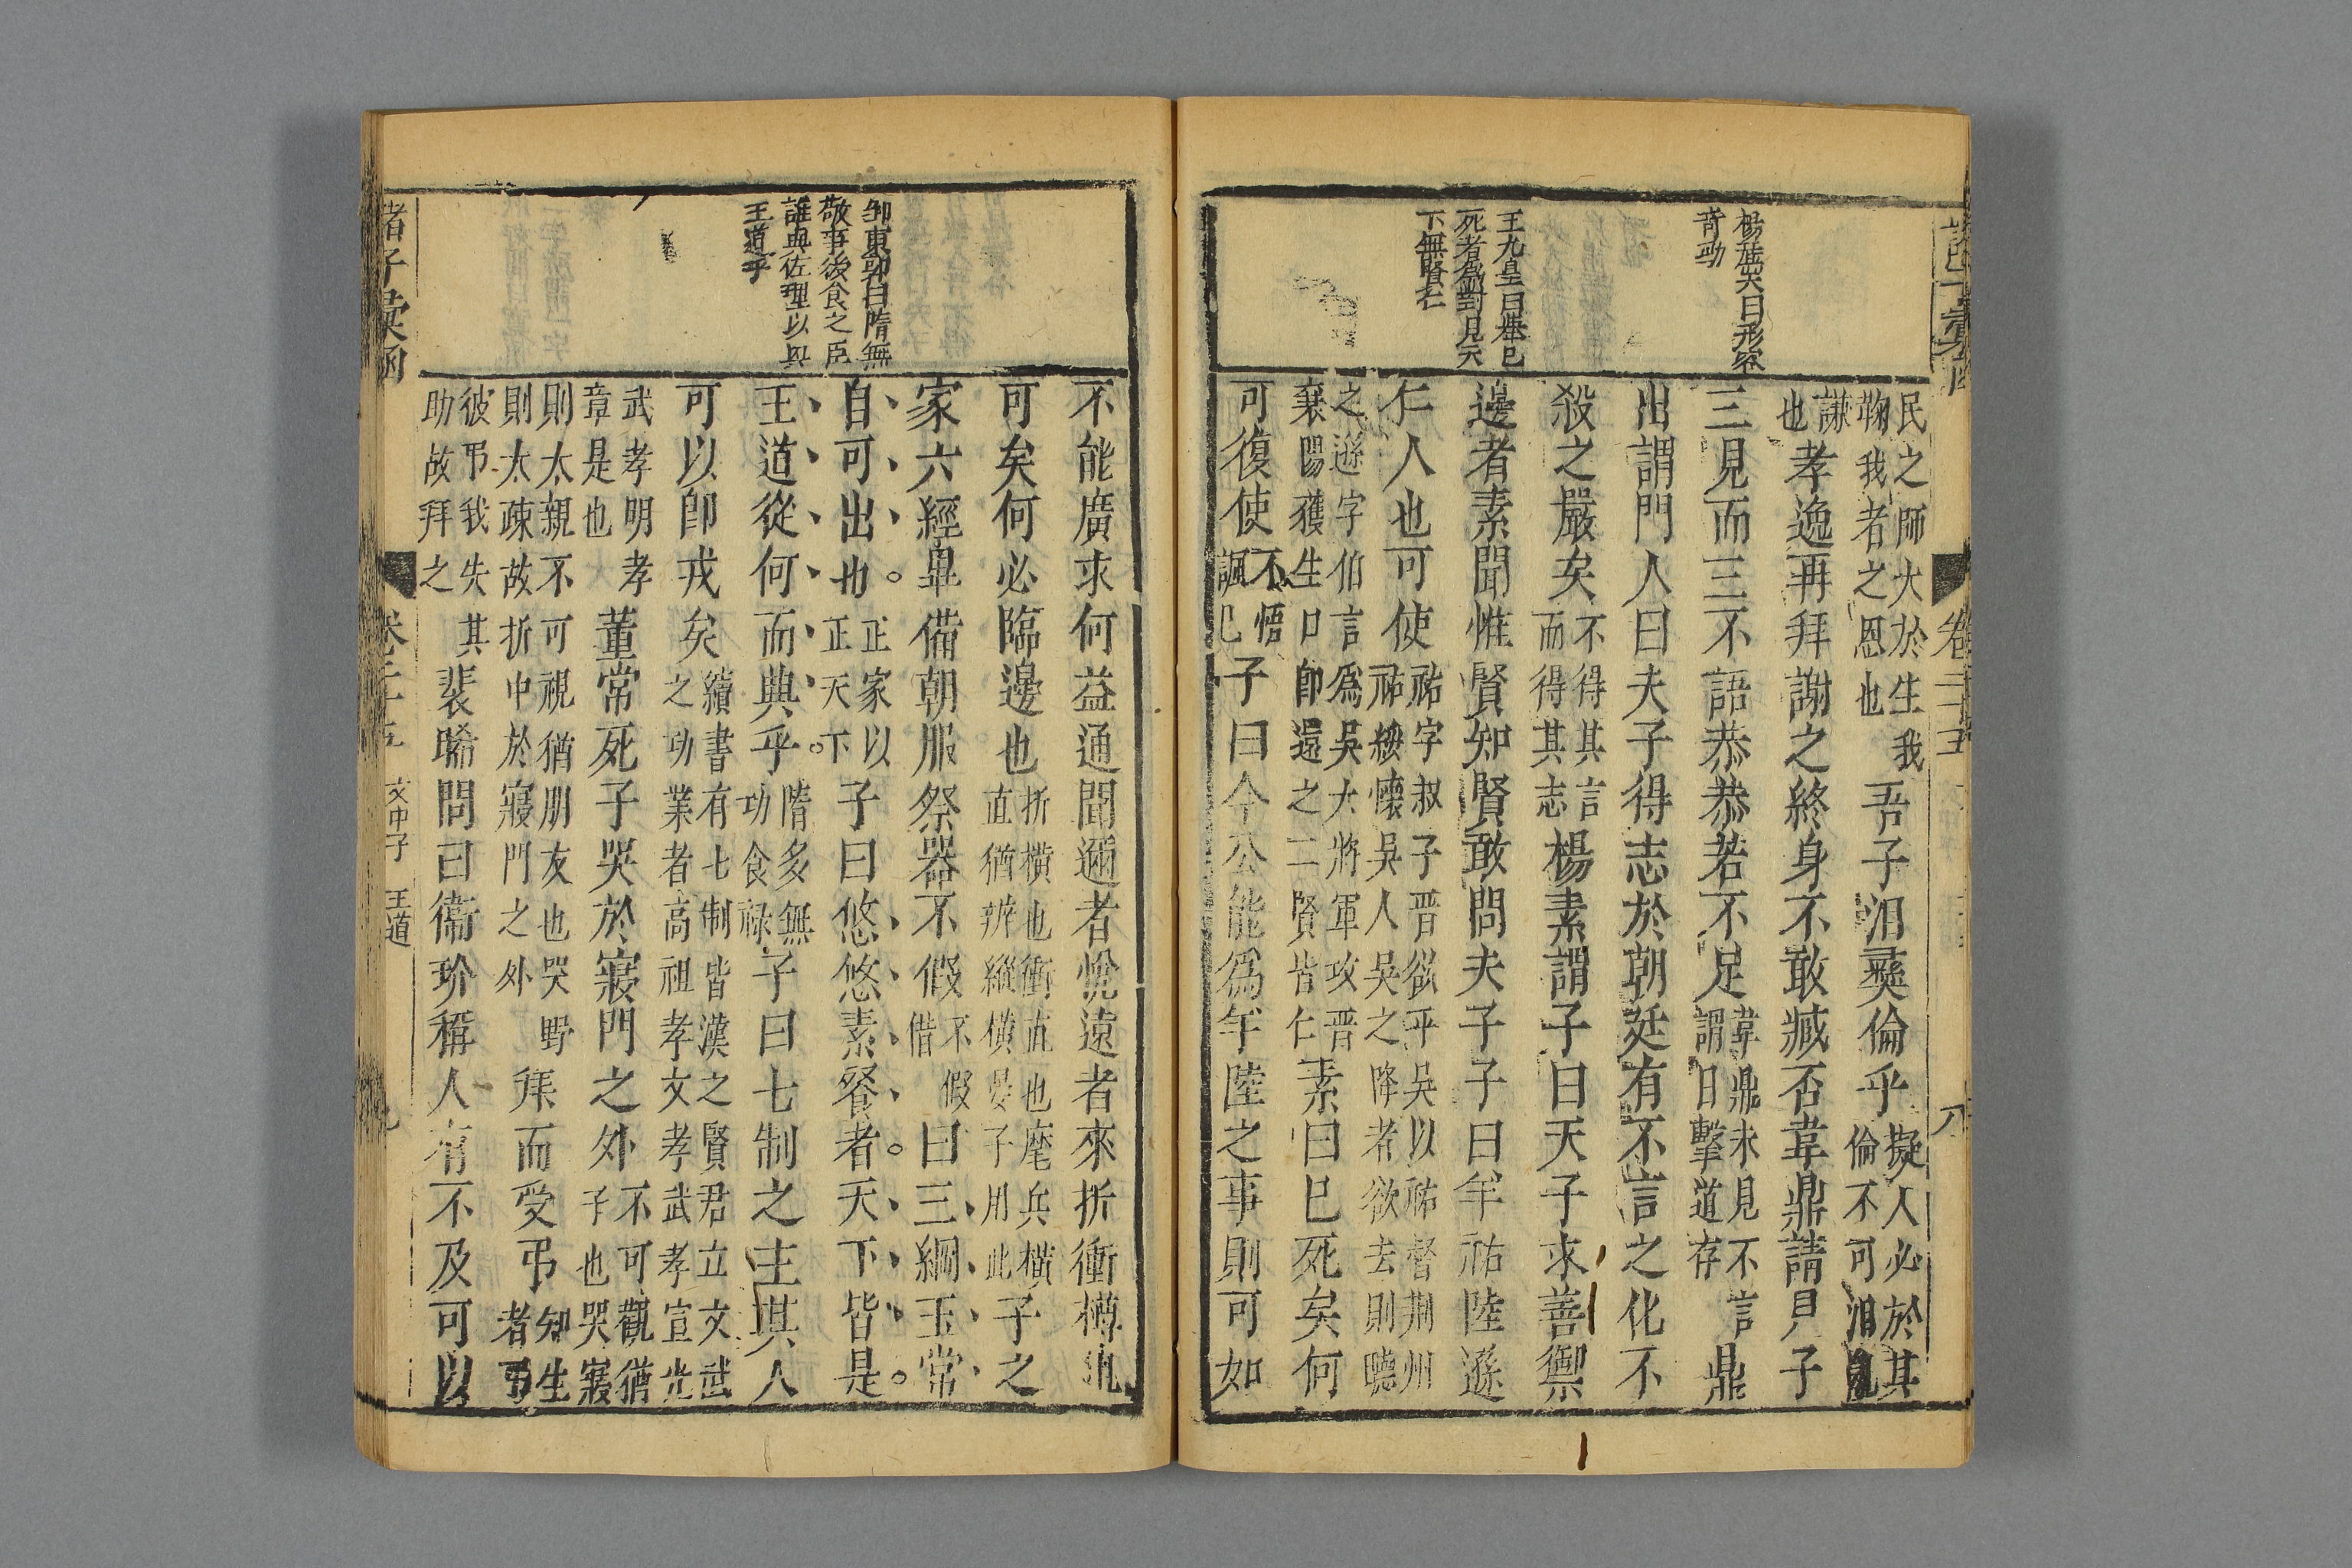 楊茲奕曰形容
奇勁
王九皇曰舉已
死者為對見天
下無賢仁
民之師大於生我
鞠我者之恩也
吾子汨彝倫乎
擬人必於其
倫不可汨亂
謙
也
孝逸再拜謝之終身不敢臧否韋鼎請見子
三見而三不語恭恭若不足
韋鼎未見不言
謂目擊道存
鼎
出謂門人曰夫子得志於朝廷有不言之化不
殺之嚴矣
不得其言
而得其志
楊素謂子曰天子求善禦
邊者素聞惟賢知賢敢問夫子子曰羊祜陸遜
仁人也可使
祜字叔子晋欲平吳以祜督荆州
祜綏懷吳人吳之降者欲去則聽
之遜字伯言爲吳大將軍攻晋
襄陽獲生口卽還之二賢皆仁
素曰巳死矣何
可復使
不悟
諷巳
子曰今公能爲羊陸之事則可如
諸子彙函
卷二十五
八
不能廣求何益通聞邇者悅遠者來折衝樽俎
可矣何必臨邊也
折橫也衝直也麾兵橫
直猶辨縱橫晏子用此
子之
家六經畢備朝服祭器不假
不假
借
曰三綱五常
自可出也
正家以
正天下
子曰悠悠素餐者天下皆是
王道從何而興乎
隋多無
功食祿
子曰七制之主其人
可以卽戎矣
續書有七制皆漢之賢君立文武
之功業者高祖孝文孝武孝宣光
武孝明孝
章是也
董常死子哭於寢門之外
不可觀猶
子也哭寢
則太親不可視猶朋友也哭野
則太疎故折中於寢門之外
拜而受弔
知生
者弔
彼弔我失其
助故拜之
裴晞問曰衞玠稱人有不及可以
邹東郭曰隋無
敬事後食之臣
誰與佐理以興
王道乎
諸子彙函
卷二十五
文中子
王道
九